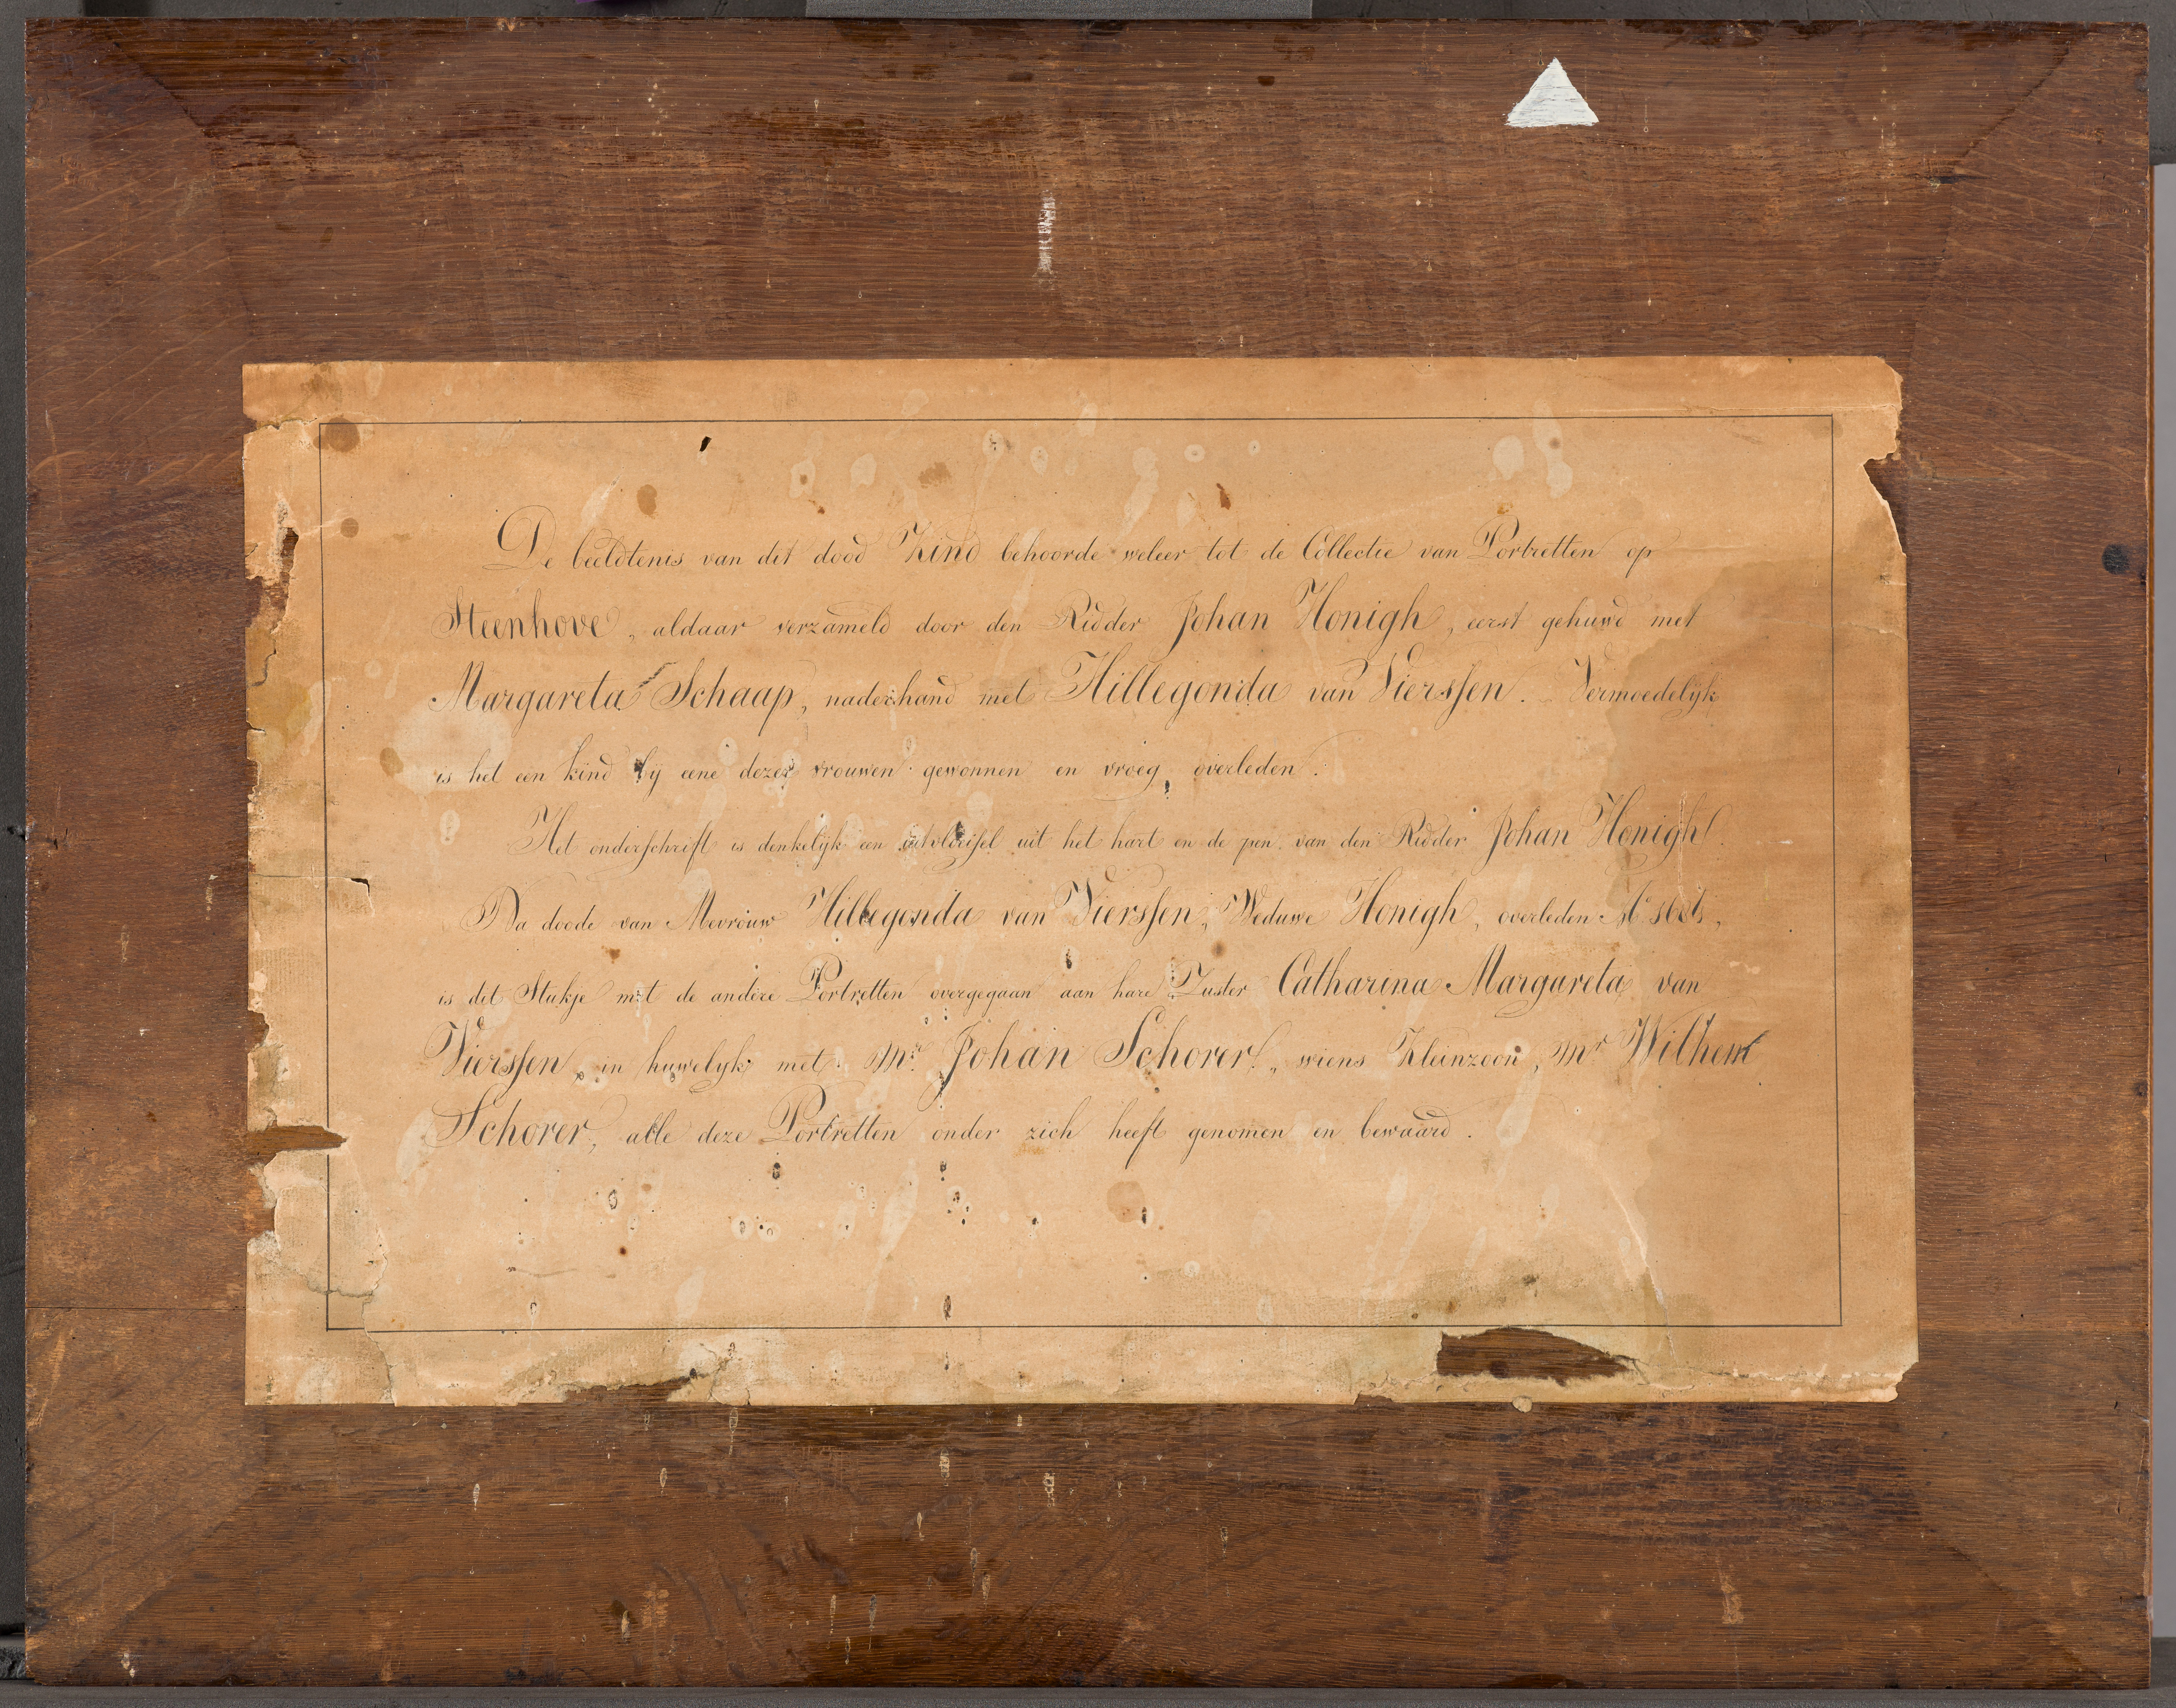 De beeldtenis van dit dood Kind behoorde weleer tot de Collectie van Portretten op
Steenhove, aldaar verzameld door den Ridder Johan Honigh, eerst gehuwd met
Margareta Schaap, naderhand met Hillegonda van Vierssen. Vermoedelijk
is het een kind bij eene dezer vrouwen gewonnen en vroeg overleden.
Het onderschrift is denkelijk een uitvloeisel uit het hart en de pen van den Ridder Johan Honigh.
Na doode van Mevrouw Hillegonda van Vierssen, Weduwe Honigh, overleden Aº
is dit Stukje met de andere Portretten overgegaan aan hare Zuster Catharina Margareta van
Vierssen, in huwelijk met Mr. Johan Schorer, wiens Kleinzoon, Mr Wilhem
Schorer, alle deze Portretten onder zich heeft genomen en bewaard.